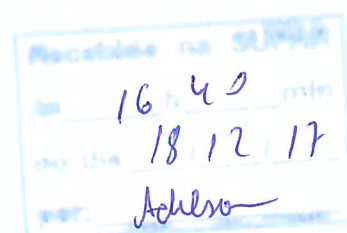 Recebido na SUPAR
às 16 h 40 min
do dia 18 / 12 / 17
por: